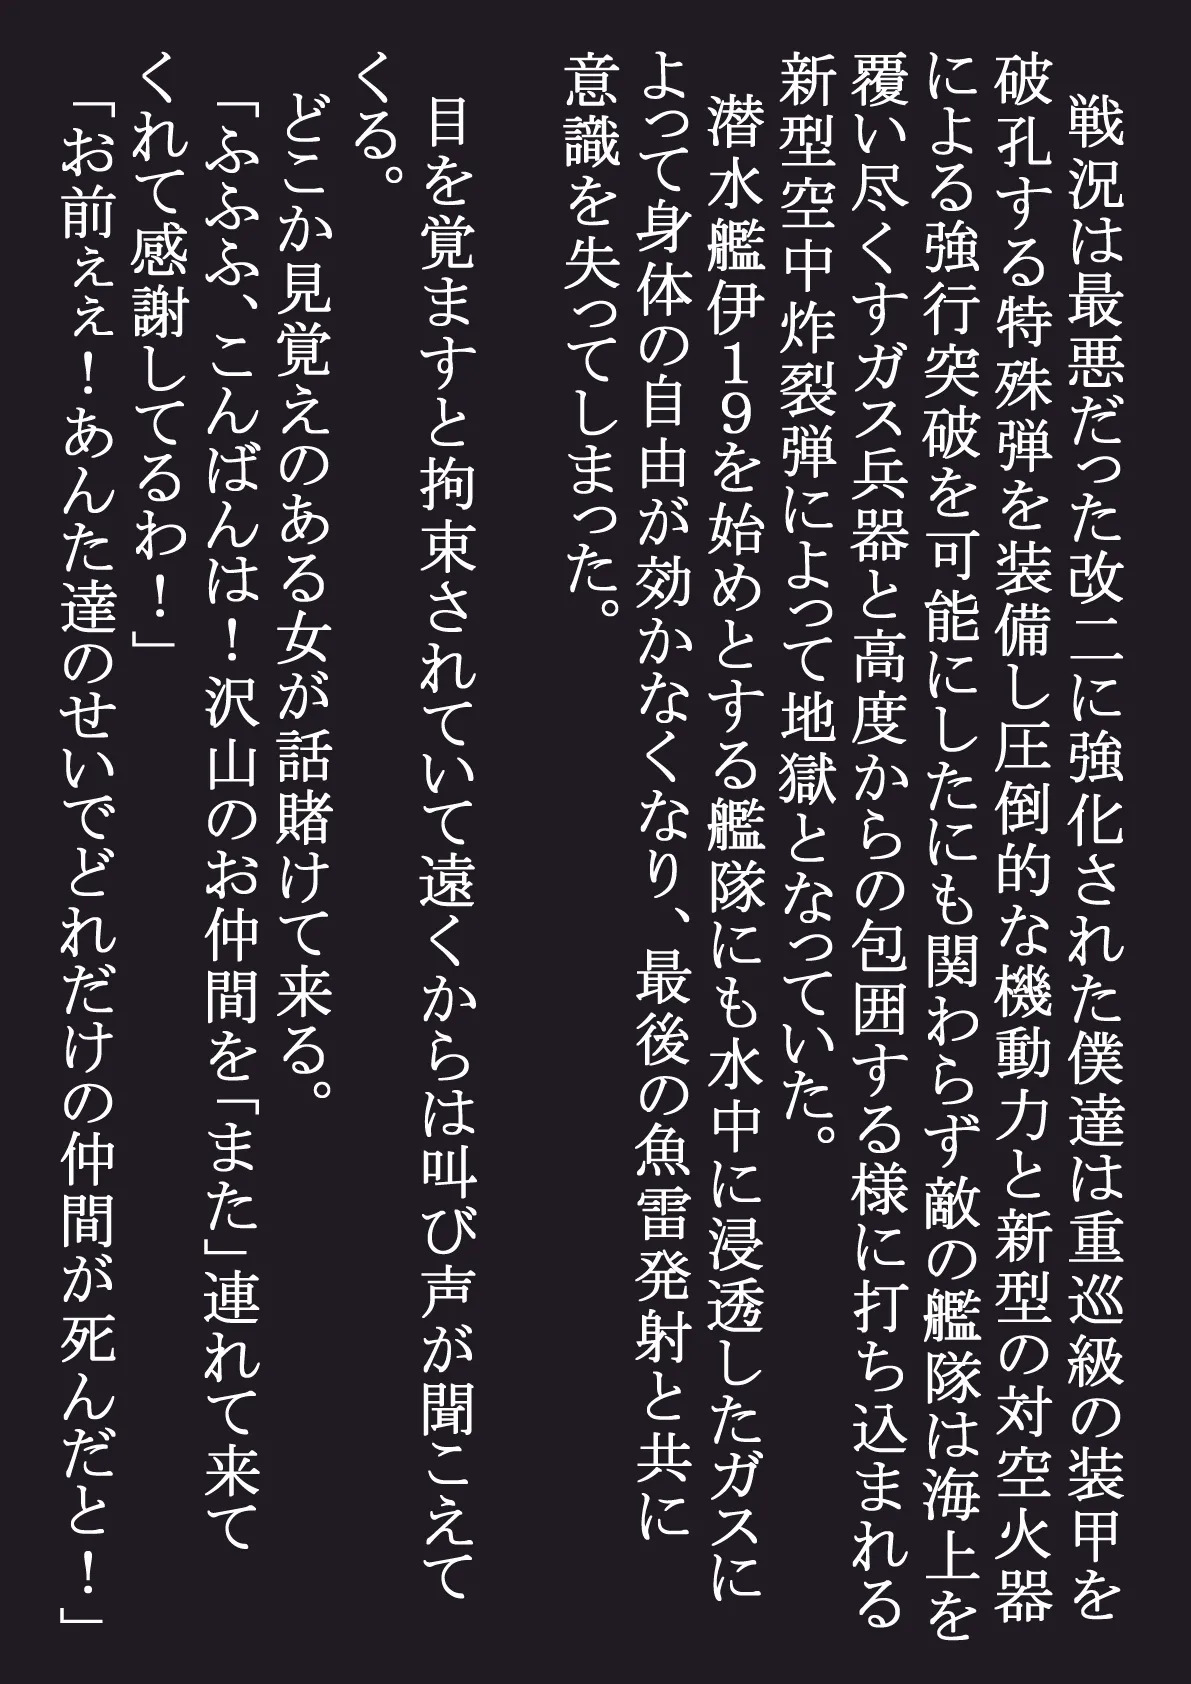 戦況は最悪だった改二に強化された僕達は重巡級の装甲を
破孔する特殊弾を装備し圧倒的な機動力と新型の対空火器
による強行突破を可能にしたにも関わらず敵の艦隊は海上を
覆い尽くすガス兵器と高度からの包囲する様に打ち込まれる
新型空中炸裂弾によって地獄となっていた。
潜水艦伊19を始めとする艦隊にも水中に浸透したガスに
よって身体の自由が効かなくなり、最後の魚雷発射と共に
意識を失ってしまった。
目を覚ますと拘束されていて遠くからは叫び声が聞こえて
くる。
どこか見覚えのある女が話賭けて来る。
「ふふふ、こんばんは！沢山のお仲間を「また」連れて来て
くれて感謝してるわ！」
「お前ぇぇ！あんた達のせいでどれだけの仲間が死んだと！」